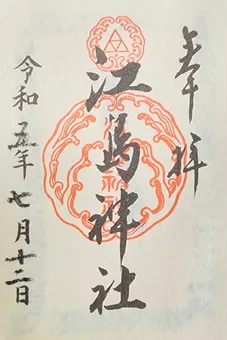 奉拝
江島神社
令和五年七月十二日